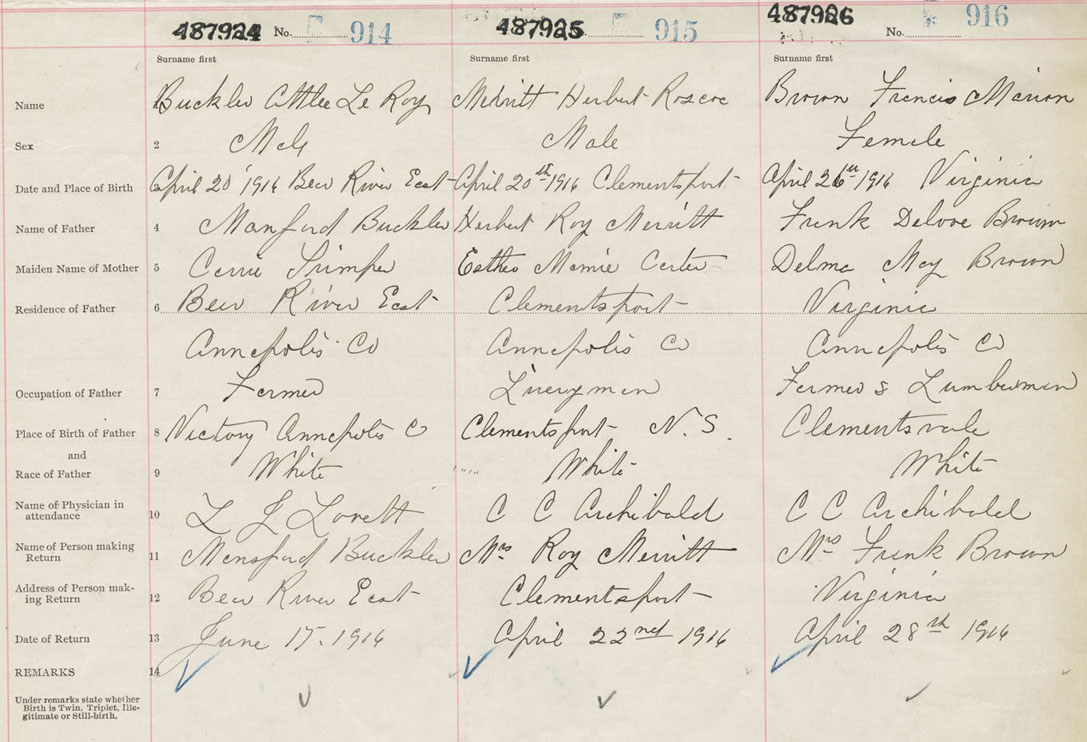 487924 No. 914 487925 915 487926 No. 916
Surname first Surname first Surname first
Name Buckler Attlee Le Roy Merritt Herbert Roscoe Brown Francis Marion
Sex 2 Male Male Female
Date and Place of Birth 3 April 20 1916 Bear River East April 20th 1916 Clementsport April 26th 1916 Virginia
Name of Father 4 Manford Buckler Herbert Roy Merritt Frank Brown
Maiden Name of Mother 5 Carrie Trimper Mamie Carter Delma May Brown
Residence of Father 6 Bear River East Clementsport Virginia
Annapolis Co Annapolis Co Annapolis Co
Occupation of Father 7 Farmer Liveryman Farmer & Lumberman
Place of Birth of Father 8 Victory Annapolis Co Clementsport N. S. Clementsvale
and
Race of Father 9 White White White
Name of Physician in
attendance 10 L J Lovett C C Archibald C C Archibald
Name of Person making
Return 11 Mansford Buckler Mrs Roy Merritt Mrs Frank Brown
Address of Person mak-
ing Return 12 Bear River East Clementsport Virginia
Date of Return 13 June 17. 1916 April 22nd 1916 April 28th 1916
REMARKS 14
Under remarks state whether
Birth is Twin, Triplet, Ille-
gitimate or Still-birth.